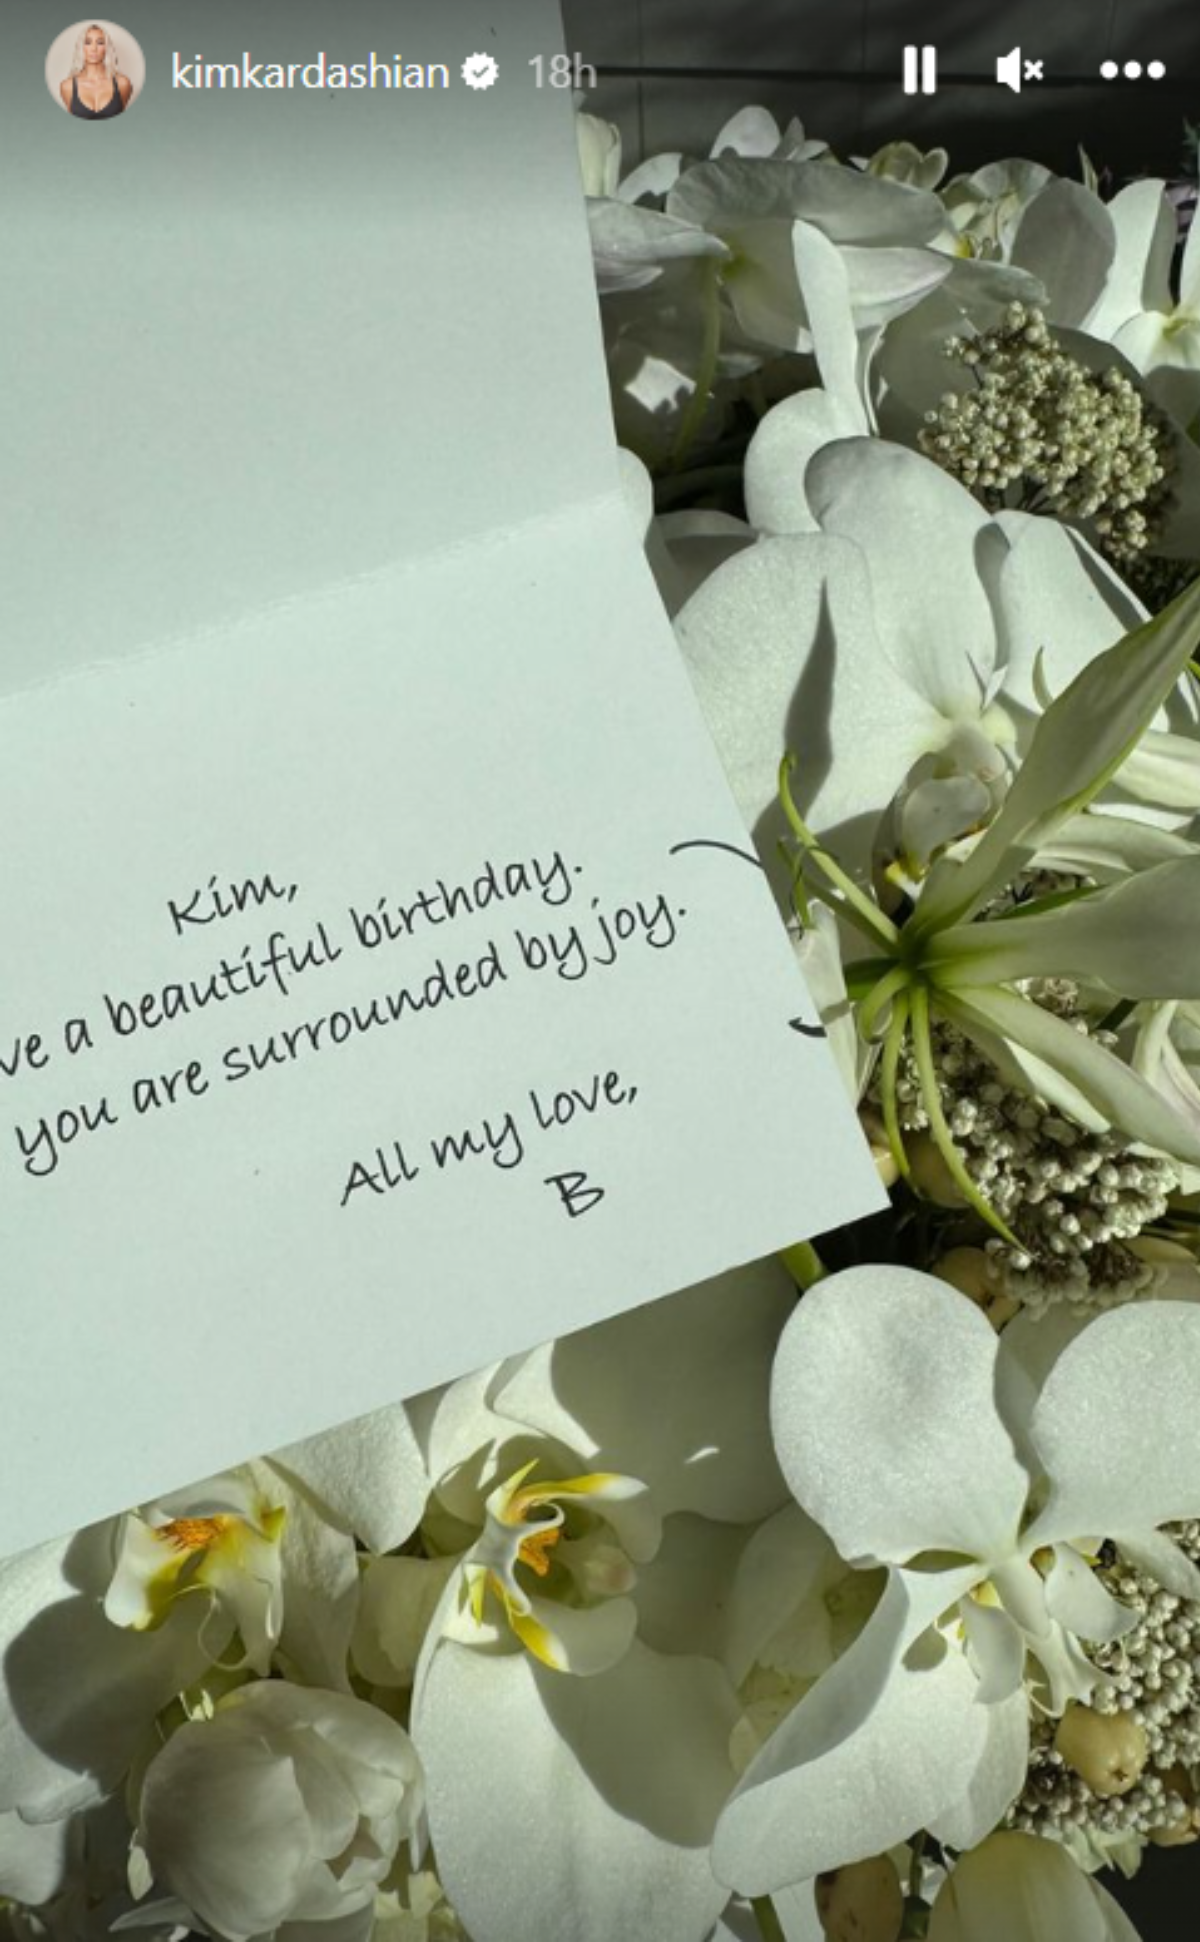 kimkardashian 18h
Kim,
ve a beautiful birthday.
you are surrounded by joy.
All my love,
B